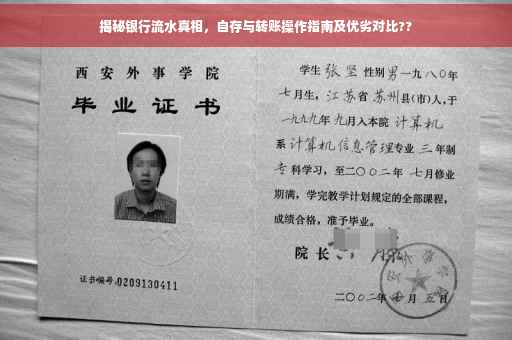 揭秘银行流水真相，自存与转账操作指南及优劣对比??
西安外事学院
毕业证书
证书编号:0209130411
学生 张坚 性别 男 一九八〇年
七月生，江苏省 苏州 县(市)人，于
一九九九年 九月入本院 计算机
系 计算机信息管理 专业 三 年制
专 科学习，至二〇〇二年 七月修业
期满，学完教学计划规定的全部课程，
成绩合格，准予毕业。
院 长
二〇〇二年 月 五 日